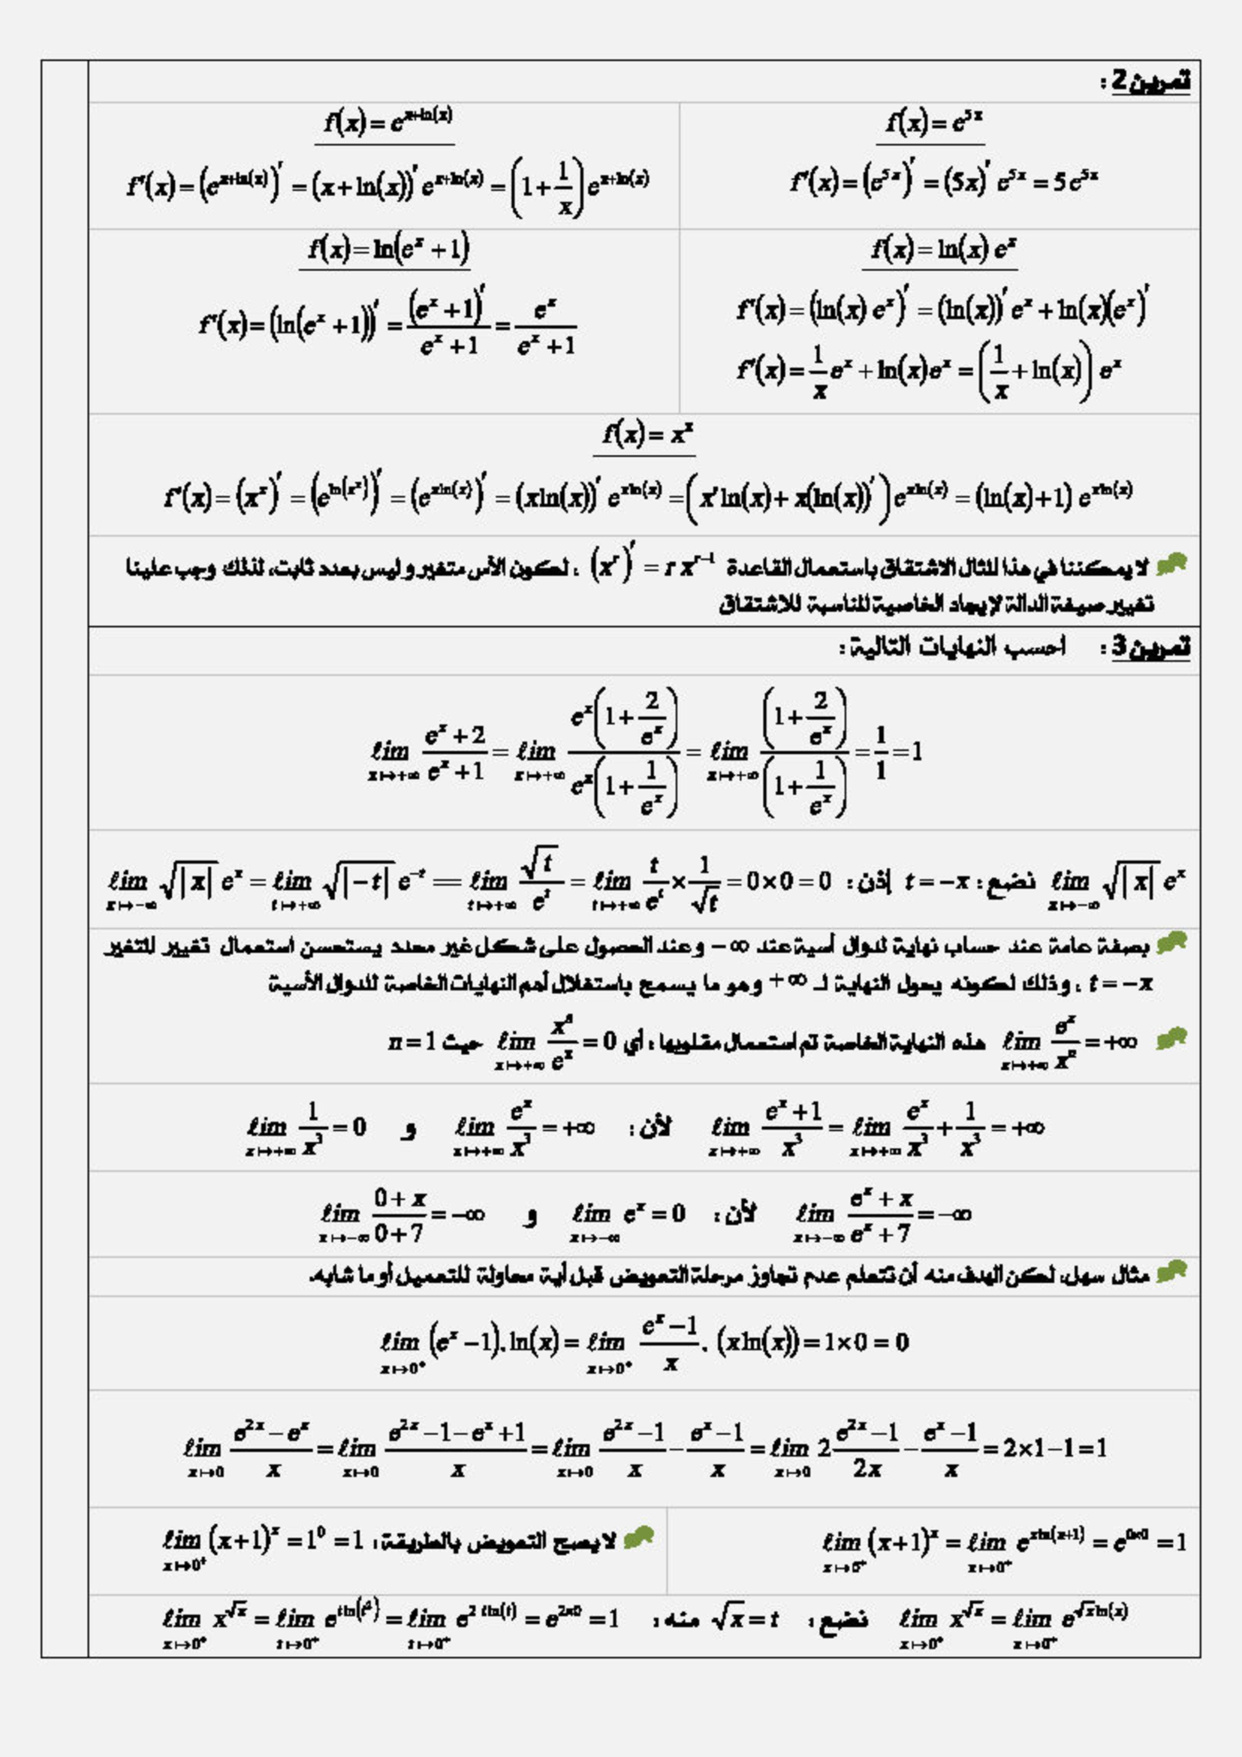 تمرين2 :
f(x) = e^{5x}
f'(x) = (e^{5x})' = (5x)' e^{5x} = 5e^{5x}
f(x) = e^{x+ln(x)}
f'(x) = (e^{x+ln(x)})' = (x+ln(x))' e^{x+ln(x)} = (1+\frac{1}{x})e^{x+ln(x)}
f(x) = ln(x) e^x
f'(x) = (ln(x) e^x)' = (ln(x))' e^x + ln(x)(e^x)'
f'(x) = \frac{1}{x}e^x + ln(x)e^x = (\frac{1}{x}+ln(x)) e^x
f(x) = ln(e^x + 1)
f'(x) = (ln(e^x + 1))' = \frac{(e^x+1)'}{e^x+1} = \frac{e^x}{e^x+1}
f(x) = x^x
f'(x) = (x^x)' = (e^{ln(x^x)})' = (e^{xln(x)})' = (xln(x))' e^{xln(x)} = (x'ln(x) + x(ln(x))')e^{xln(x)} = (ln(x)+1) e^{xln(x)}
لا يمكننا في هذا المثال الاشتقاق باستعمال القاعدة (x^r)' = r x^{r-1} ، لكون الأس متغير و ليس بعدد ثابت، لذلك وجب علينا
تغيير صيغة الدالة لإيجاد الخاصية المناسبة للاشتقاق
تمرين3 : احسب النهايات التالية :
\lim_{x↦+∞} \frac{e^x+2}{e^x+1} = \lim_{x↦+∞} \frac{e^x(1+\frac{2}{e^x})}{e^x(1+\frac{1}{e^x})} = \lim_{x↦+∞} \frac{(1+\frac{2}{e^x})}{(1+\frac{1}{e^x})} = \frac{1}{1} = 1
\lim_{x↦-∞} \sqrt{|x|} e^x نضع : t = -x إذن : \lim_{x↦-∞} \sqrt{|x|} e^x = \lim_{t↦+∞} \sqrt{|-t|} e^{-t} == \lim_{t↦+∞} \frac{\sqrt{t}}{e^t} = \lim_{t↦+∞} \frac{t}{e^t}×\frac{1}{\sqrt{t}} = 0×0 = 0
بصفة عامة عند حساب نهاية لدوال أسية عند -∞ وعند الحصول على شكل غير محدد يستحسن استعمال تغيير المتغير
t = -x ، وذلك لكونه يحول النهاية لـ +∞ وهو ما يسمح باستغلال أهم النهايات الخاصة للدوال الأسية
\lim_{x↦+∞} \frac{e^x}{x^n} = +∞ هذه النهاية الخاصة تم استعمال مقلوبها ، أي \lim_{x↦+∞} \frac{x^n}{e^x} = 0 حيث n = 1
\lim_{x↦+∞} \frac{e^x+1}{x^3} = \lim_{x↦+∞} \frac{e^x}{x^3}+\frac{1}{x^3} = +∞ لأن : \lim_{x↦+∞} \frac{e^x}{x^3} = +∞ و \lim_{x↦+∞} \frac{1}{x^3} = 0
\lim_{x↦-∞} \frac{e^x+x}{e^x+7} = -∞ لأن : \lim_{x↦-∞} e^x = 0 و \lim_{x↦-∞} \frac{0+x}{0+7} = -∞
مثال سهل، لكن الهدف منه أن تتعلم عدم تجاوز مرحلة التعويض قبل أية محاولة للتعميل أو ما شابه.
\lim_{x↦0^+} (e^x-1).ln(x) = \lim_{x↦0^+} \frac{e^x-1}{x}. (xln(x)) = 1×0 = 0
\lim_{x↦0} \frac{e^{2x}-e^x}{x} = \lim_{x↦0} \frac{e^{2x}-1-e^x+1}{x} = \lim_{x↦0} \frac{e^{2x}-1}{x}-\frac{e^x-1}{x} = \lim_{x↦0} 2\frac{e^{2x}-1}{2x}-\frac{e^x-1}{x} = 2×1-1 = 1
\lim_{x↦0^+} (x+1)^x = \lim_{x↦0^+} e^{xln(x+1)} = e^{0×0} = 1
لا يصح التعويض بالطريقة : \lim_{x↦0^+} (x+1)^x = 1^0 = 1
\lim_{x↦0^+} x^{\sqrt{x}} = \lim_{x↦0^+} e^{\sqrt{x}ln(x)} نضع : \sqrt{x} = t منه : \lim_{x↦0^+} x^{\sqrt{x}} = \lim_{t↦0^+} e^{tln(t^2)} = \lim_{t↦0^+} e^{2 tln(t)} = e^{2×0} = 1